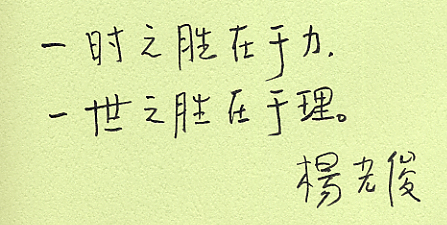 一时之胜在于力.
一世之胜在于理。
楊光俊